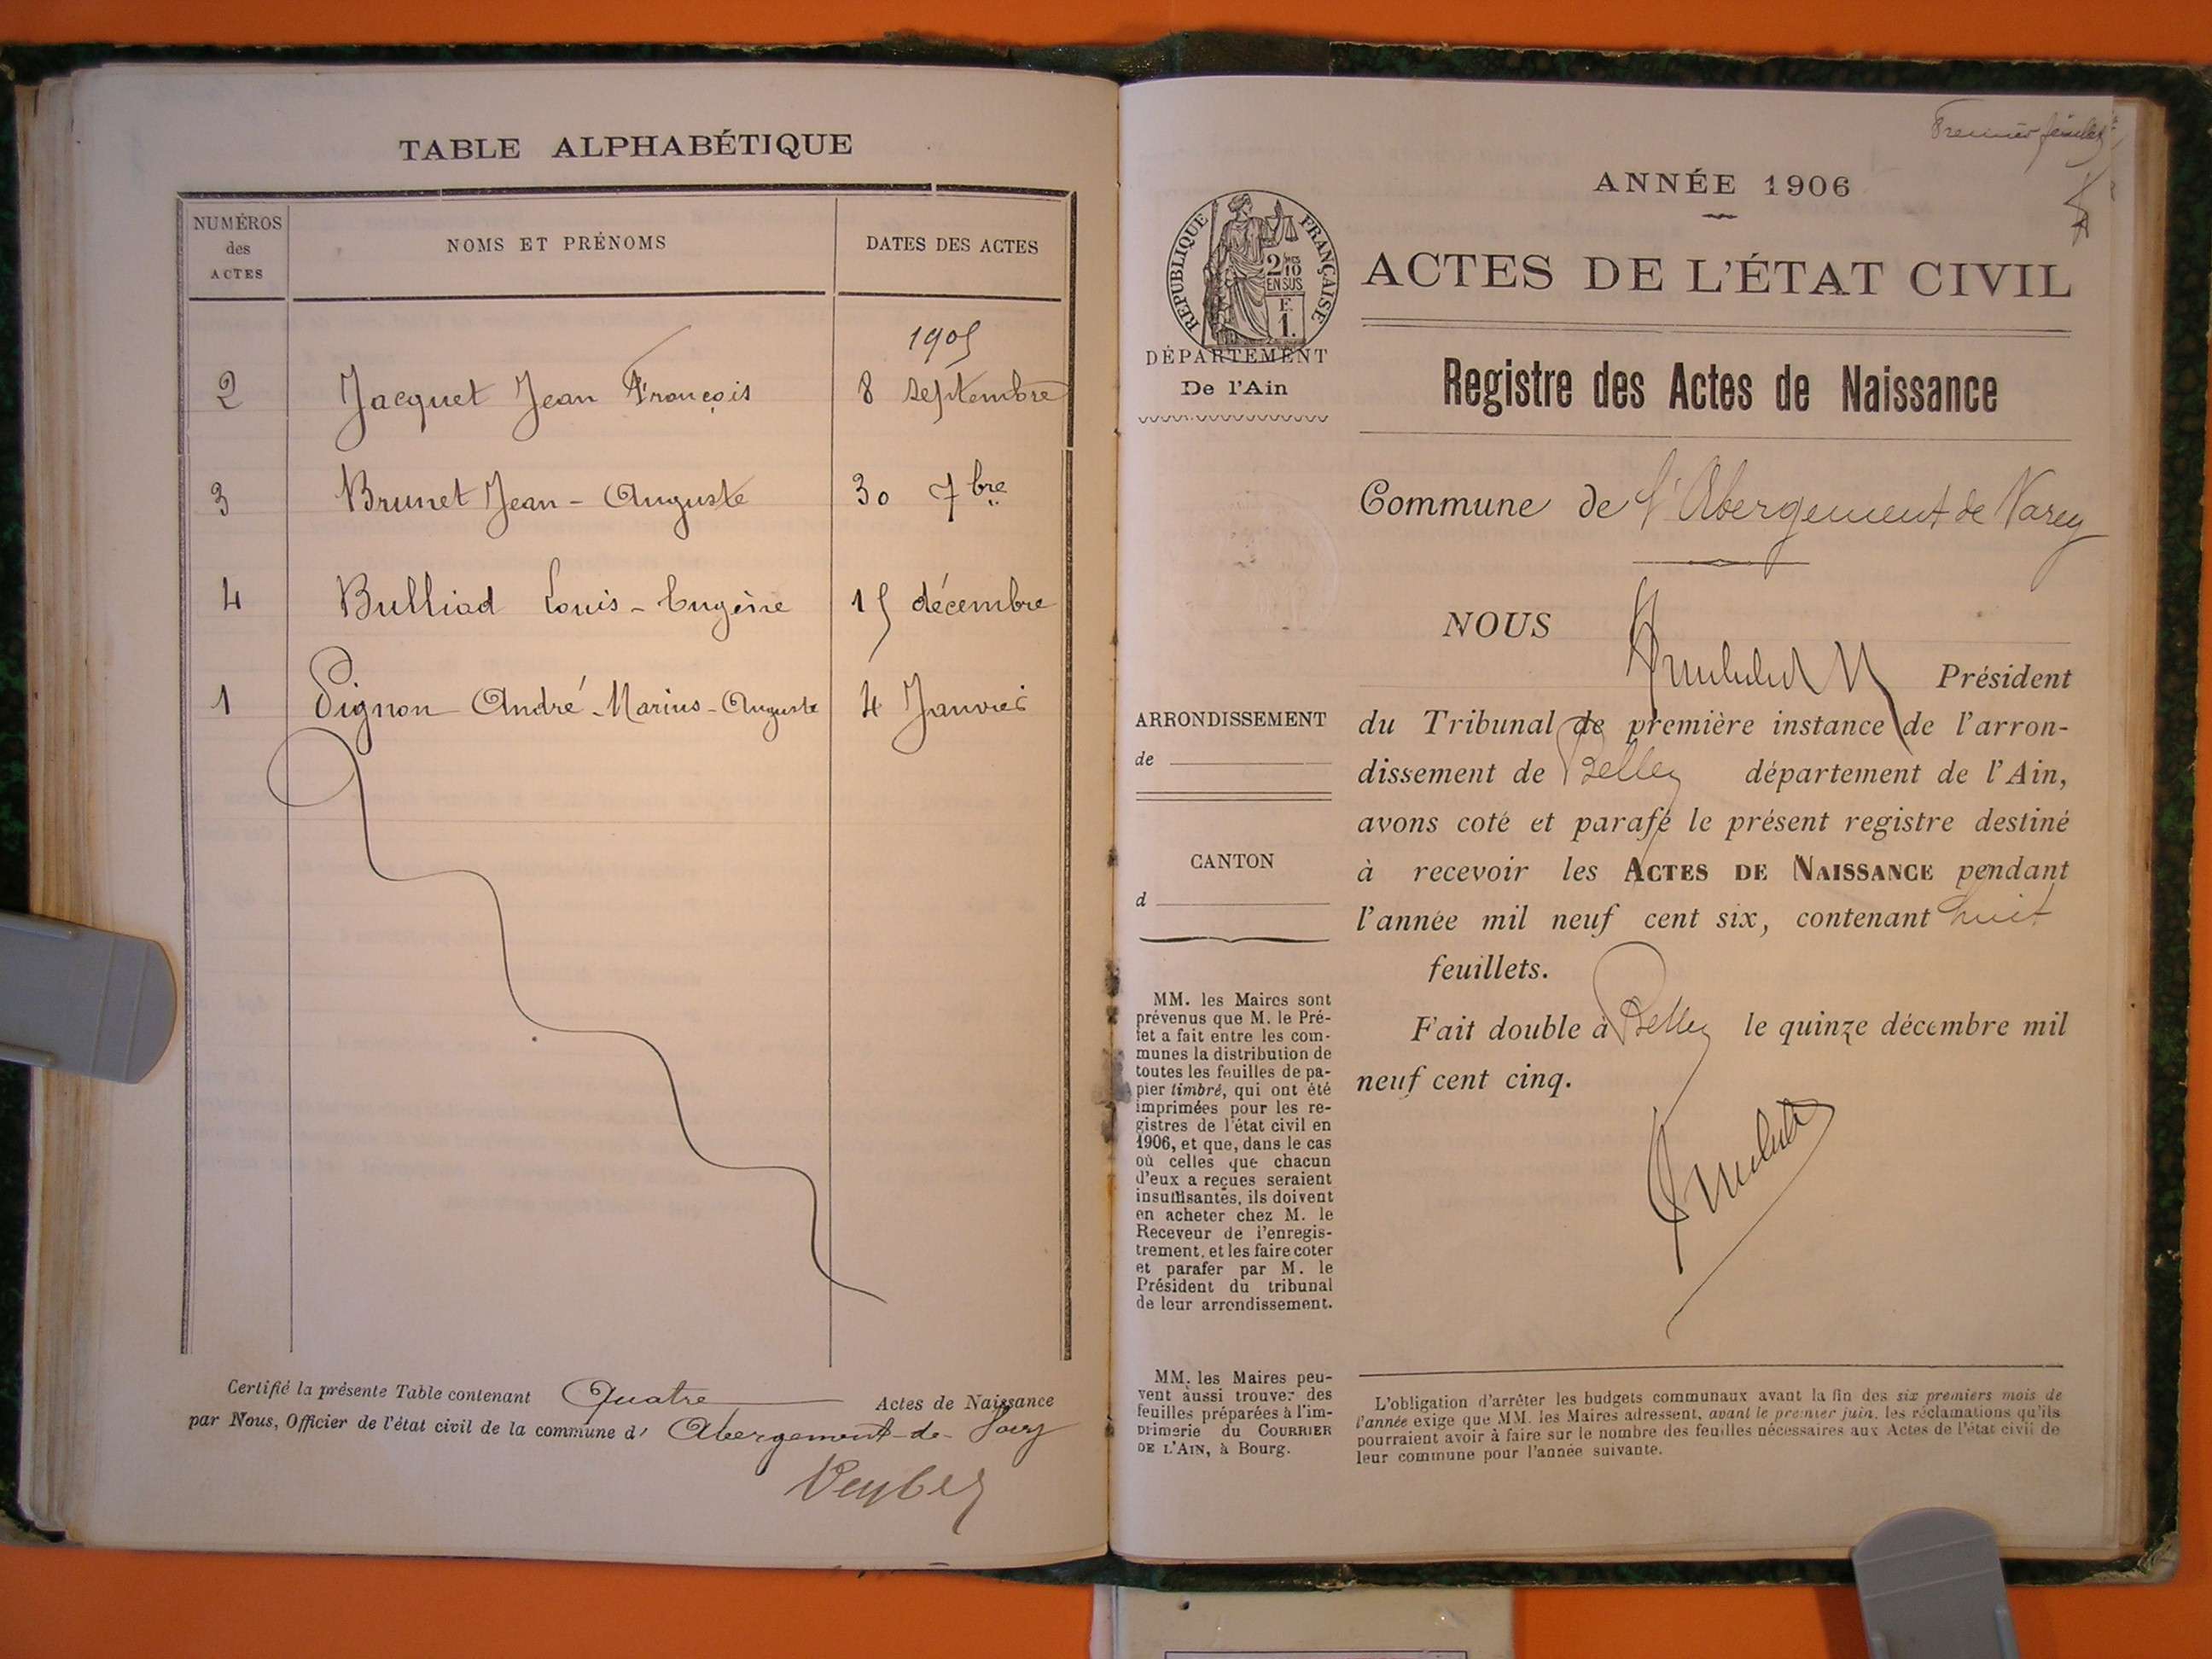 TABLE ALPHABÉTIQUE
NUMÉROS
des
ACTES
NOMS ET PRÉNOMS
DATES DES ACTES
1905
2 Jacquet Jean François 8 septembre
3 Brunet Jean - Auguste 30 7bre
4 Bulliod Louis - Eugène 15 décembre
1 Pignon André - Marius - Auguste 4 Janvier
Certifié la présente Table contenant Quatre Actes de Naissance
par Nous, Officier de l'état civil de la commune d' Abergement-de-
Premier feuillet
ANNÉE 1906
RÉPUBLIQUE FRANÇAISE
2/10
EN SUS
F.
1.
ACTES DE L'ÉTAT CIVIL
DÉPARTEMENT
De l'Ain
Registre des Actes de Naissance
Commune de l'Abergement de Varey
NOUS
Président
du Tribunal de première instance de l'arron-
dissement de Belley département de l'Ain,
avons coté et parafé le présent registre destiné
à recevoir les ACTES DE NAISSANCE pendant
l'année mil neuf cent six, contenant huit
feuillets.
Fait double à Belley le quinze décembre mil
neuf cent cinq.
ARRONDISSEMENT
de
CANTON
d
MM. les Maires sont
prévenus que M. le Pré-
fet a fait entre les com-
munes la distribution de
toutes les feuilles de pa-
pier timbré, qui ont été
imprimées pour les re-
gistres de l'état civil en
1906, et que, dans le cas
où celles que chacun
d'eux a reçues seraient
insuffisantes, ils doivent
en acheter chez M. le
Receveur de l'enregis-
trement, et les faire coter
et parafer par M. le
Président du tribunal
de leur arrondissement.
MM. les Maires peu-
vent aussi trouver des
feuilles préparées à l'im-
primerie du COURRIER
DE L'AIN, à Bourg.
L'obligation d'arrêter les budgets communaux avant la fin des six premiers mois de
l'année exige que MM. les Maires adressent, avant le premier juin, les réclamations qu'ils
pourraient avoir à faire sur le nombre des feuilles nécessaires aux Actes de l'état civil de
leur commune pour l'année suivante.